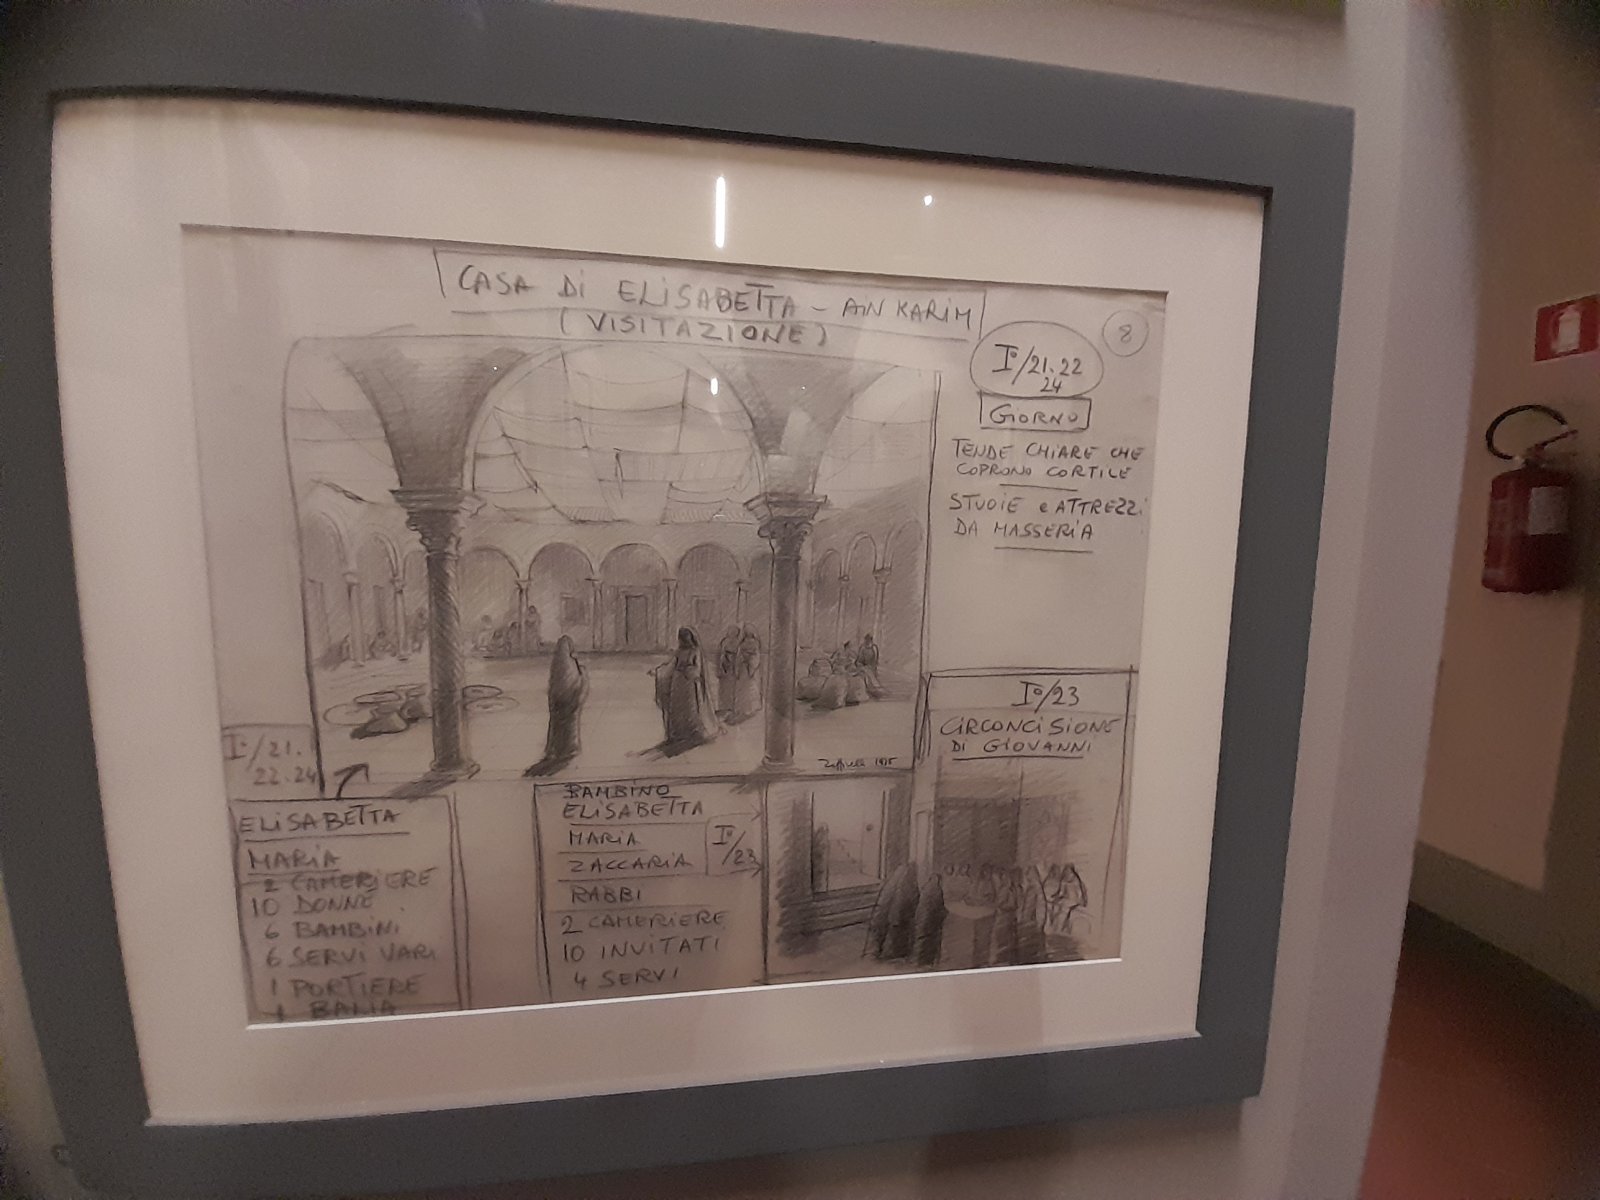 CASA DI ELISABETTA - AIN KARIM
(VISITAZIONE)
8
I°/21.22
24
GIORNO
TENDE CHIARE CHE
COPRONO CORTILE
STUOIE e ATTREZZI
DA MASSERIA
Zeffirelli 1975
I°/23
CIRCONCISIONE
DI GIOVANNI
I°/21.
22.24
ELISABETTA
MARIA
2 CAMERIERE
10 DONNE
6 BAMBINI
6 SERVI VARI
1 PORTIERE
1 BALIA
BAMBINO
ELISABETTA
MARIA
ZACCARIA
I°/23
RABBI
2 CAMERIERE
10 INVITATI
4 SERVI